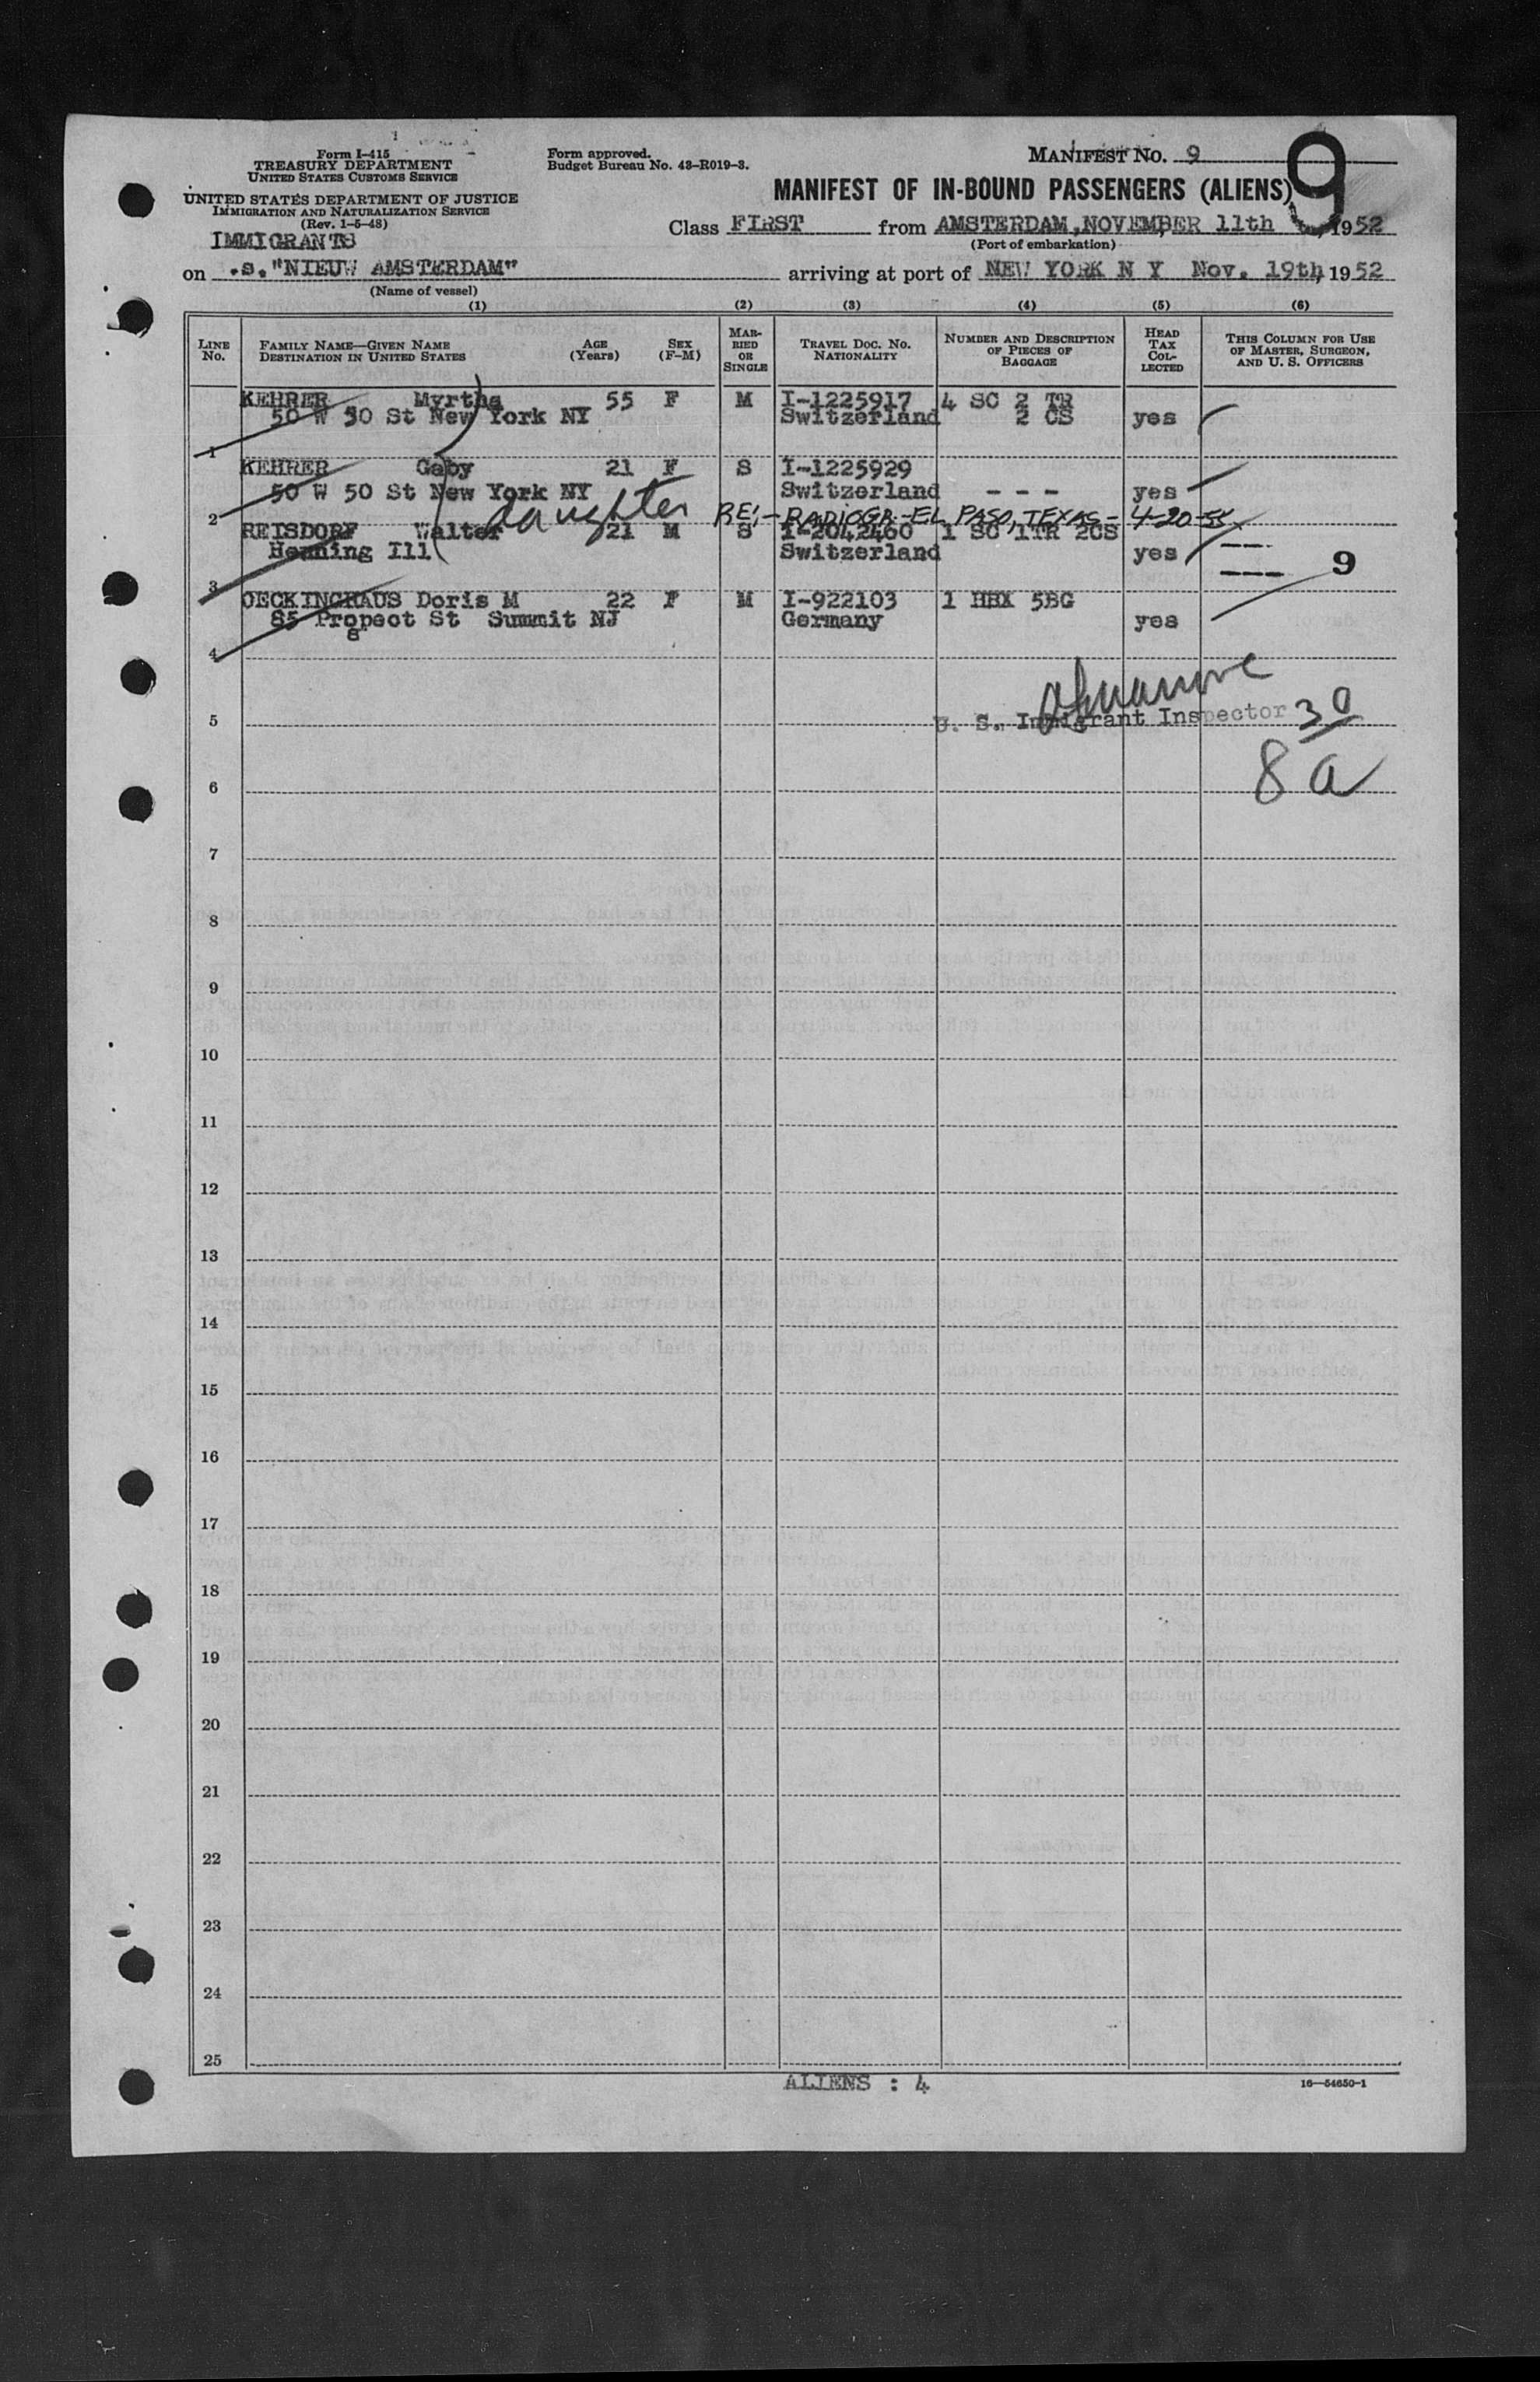 Form I-415
TREASURY DEPARTMENT
UNITED STATES CUSTOMS SERVICE
UNITED STATES DEPARTMENT OF JUSTICE
IMMIGRATION AND NATURALIZATION SERVICE
(Rev. 1-5-48)
IMMIGRANTS
Form approved.
Budget Bureau No. 43-R019-3.
MANIFEST NO. 9
9
MANIFEST OF IN-BOUND PASSENGERS (ALIENS)
Class FIRST from AMSTERDAM, NOVEMBER 11th, 1952
(Port of embarkation)
on .s. "NIEUW AMSTERDAM" arriving at port of NEW YORK N Y Nov. 19th, 1952
(Name of vessel)
(1) (2) (3) (4) (5) (6)
LINE No. FAMILY NAME—GIVEN NAME DESTINATION IN UNITED STATES AGE (Years) SEX (F-M) MARRIED OR SINGLE TRAVEL DOC. NO. NATIONALITY NUMBER AND DESCRIPTION OF PIECES OF BAGGAGE HEAD TAX COLLECTED THIS COLUMN FOR USE OF MASTER, SURGEON, AND U. S. OFFICERS
KEHRER Myrtha 55 F M I-1225917 4 SC 2 TR
50 W 50 St New York NY Switzerland 2 CS yes
1
KEHRER Gaby 21 F S I-1225929
50 W 50 St New York NY Switzerland - - - yes
2 daughter RE:- RADIOGR.-EL PASO, TEXAS- 4-20-55
REISDORF Walter 21 M S I-2042460 1 SC 1TR 2CS
Henning Ill Switzerland yes
3 9
OECKINGHAUS Doris M 22 F M I-922103 1 HBX 5BG
85 Propect St Summit NJ Germany yes
s
4
5 U. S. Immigrant Inspector 30
8a
6
7
8
9
10
11
12
13
14
15
16
17
18
19
20
21
22
23
24
25
ALIENS : 4
16—54650-1